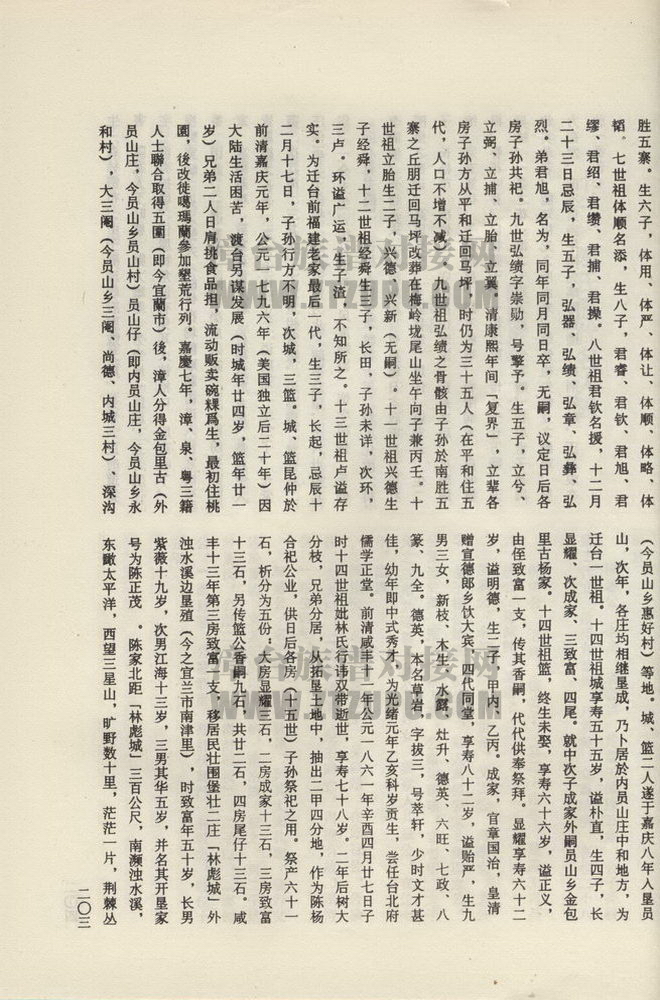 胜五寨。生六子，体用、体严、体让、体顺、体略、体
韬。七世祖体顺名添，生八子，君睿、君钦、君旭、君
缪、君绍、君缵、君捕、君操。八世祖君钦名援，十二月
二十三日忌辰，生五子，弘器、弘绩、弘章、弘彝、弘
烈。弟君旭，名为，同年同月同日卒，无嗣，议定日后各
房子孙共祀。九世弘绩字崇勋，号擎予。生五子，立兮、
立弼、立捕、立胎、立翼。清康熙年间「复界」，立辈各
房子孙方从平和迁回马坪，时仍为三十五人（在平和住五
代，人口不增不减）。九世祖弘绩之骨骸由子孙於南胜五
寨之丘朋迁回马坪改葬在梅岭垅尾山坐午向子兼丙壬。十
世祖立胎生二子，兴德、兴新（无嗣）。十一世祖兴德生
子经舜，十二世祖经舜生三子，长田，子孙未详，次环，
三卢。环谥广运，生子渣，不知所之。十三世祖卢谥存
实。为迁台前福建老家最后一代，生三子，长起，忌辰十
二月十七日，子孙行方不明，次城，三篮。城、篮昆仲於
前清嘉庆元年，公元一七九六年（美国独立后二十年）因
大陆生活困苦，渡台另谋发展（时城年廿四岁，篮年廿一
岁）兄弟二人日肩挑食品担，流动贩卖碗粿爲生，最初住桃
園，後改徙噶瑪蘭參加墾荒行列。嘉慶七年，漳、泉、粤三籍
人士聯合取得五圍（即今宜蘭市）後，漳人分得金包里古（外
员山庄，今员山乡员山村）员山仔（即内员山庄，今员山乡永
和村），大三阄（今员山乡三阄、尚德、内城三村）、深沟
（今员山乡惠好村）等地。城、篮二人遂于嘉庆八年入垦员
山，次年，各庄均相继垦成，乃卜居於内员山庄中和地方，为
迁台一世祖。十四世祖城享寿五十五岁，谥朴直，生四子，长
显耀、次成家、三致富、四尾。就中次子成家外嗣员山乡金包
里古杨家。十四世祖篮，终生未娶，享寿六十六岁，谥正义，
由侄致富一支，传其香嗣，代代供奉祭拜。显耀享寿六十二
岁，谥明德，生二子，甲内、乙丙。成家，官章国治，皇清
赠宣德郎乡饮大宾，四代同堂，享寿八十二岁，谥贻严，生九
男三女，新枝、木生、水霖、灶升、德英、六旺、七政、八
篆、九全。德英，本名草岩，字拔三，号萃轩，少时文才甚
佳，幼年即中式秀才，为光绪元年乙亥科岁贡生，尝任台北府
儒学正堂。前清咸丰十一年公元一八六一年辛酉四月廿七日子
时十四世祖妣林氏行讳双带逝世，享寿七十八岁。二年后树大
分枝，兄弟分居，从拓垦土地中，抽出二甲四分地，作为陈杨
合祀公业，供日后各房（十五世）子孙祭祀之用。祭产六十一
石，析分为五份：大房显耀三石，二房成家十三石，三房致富
十三石，另传篮公香嗣九石，共廿二石，四房尾仔十三石。咸
丰十三年第三房致富一支，移居民壮围堡壮二庄「林彪城」外
浊水溪边垦殖（今之宜兰市南津里），时致富年五十岁，长男
紫薇十九岁，次男江海十三岁，三男其华五岁，并名其开垦家
号为陈正茂。陈家北距「林彪城」三百公尺，南濒浊水溪，
东瞰太平洋，西望三星山，旷野数十里，茫茫一片，荆棘丛
二〇三
台族谱对接网
WWW.TZPDJ.COM